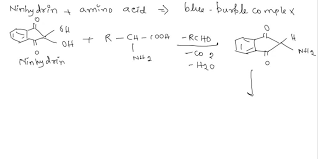 Ninhydrin + amino acid ⇒ blue-burble complex
O
OH
OH
O
Ninhydrin
+ R - CH - COOH
NH2
-RCHO
-CO2
-H2O
O
H
NH2
O